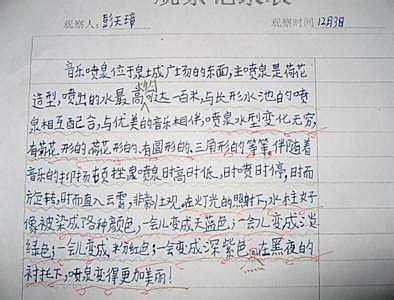 观察记录表
观察人:彭天璋 观察时间 12月3日
音乐喷泉位于泉城广场的东面,主喷泉是荷花
造型,喷出的水最高能达一百米,与长形水池的喷
泉相互配合,与优美的音乐相伴,喷泉水型变化无穷,
有菊花形的、荷花形的、有圆形的、三角形的等等,伴随着
音乐的抑扬顿挫,喷泉时高时低,时喷时停,时而
旋转,时而直入云霄,非常壮观。在灯光的照射下,水柱好
像被染成了各种颜色,一会儿变成天蓝色;一会儿变成淡
绿色;一会儿变成粉红色;一会变成深紫色,在黑夜的
衬托下,喷泉变得更加美丽!